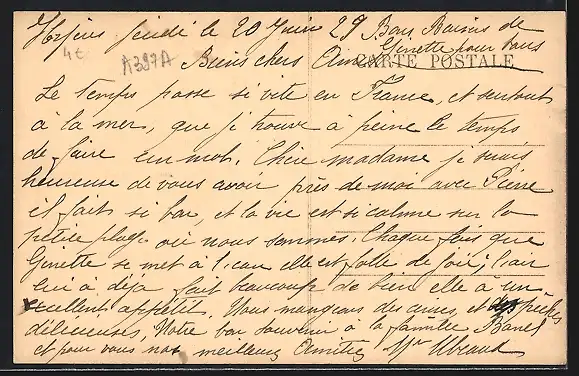 Hyères jeudi le 20 Juin 29 Bons Baisers de
Ginette pour vous
4 €
A387A
Biens chers Amis
CARTE POSTALE
Le temps passe si vite en France, et surtout
à la mer, que je trouve à peine le temps
de faire un mot. Chère madame je suis
heureuse de vous avoir près de moi avec Pierre
il fait si bon, et la vie est si calme sur la
petite plage où nous sommes. Chaque fois que
Ginette se met à l'eau elle est folle de joie; l'air
lui a déjà fait beaucoup de bien elle à un
excellent appétit. Nous mangeons des et pêches
délicieuses, Notre bon souvenir à la famille
et pour vous nos meilleures Amitiés